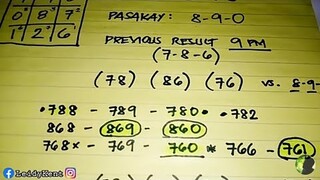 PASAKAY: 8-9-0
0° 8³ 7²
1² 2⁴ 6¹
PREVIOUS RESULT 9 PM
(7-8-6)
(78) (86) (76) vs. 8-9-
•788 - 789 - 780• •782
868 - 869 - 860
768× - 769 - 760 * 766 - 761
LeidyKent